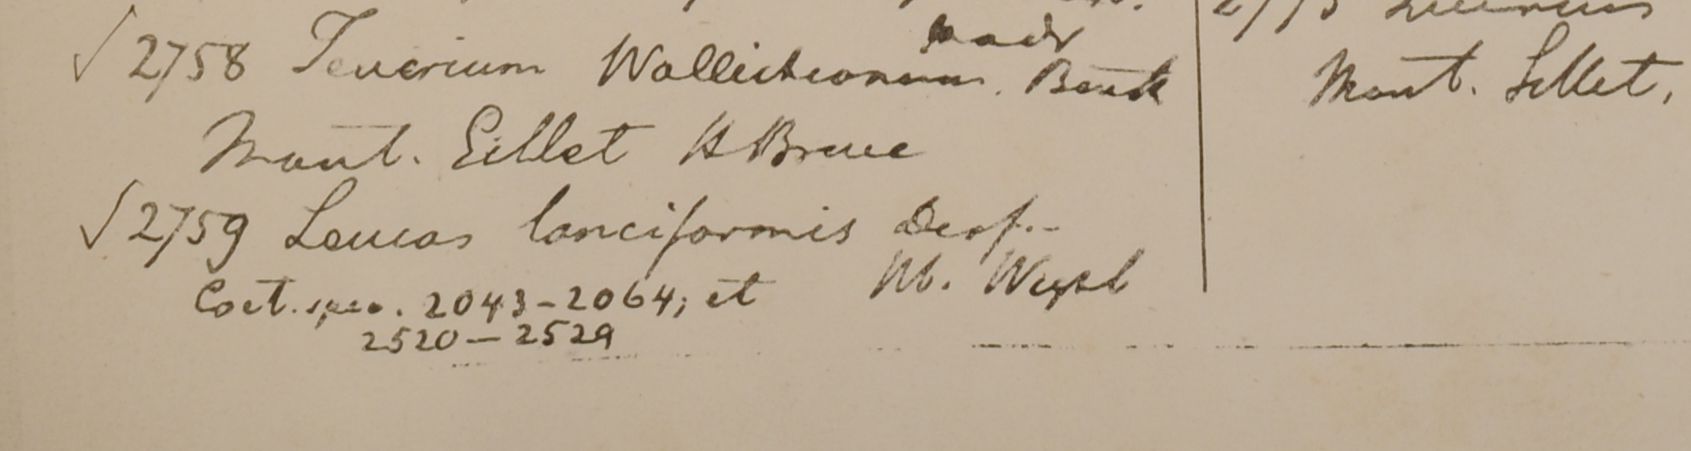 √ 2758 Teucrium Wallichianum. Benth
Mont. Sillet H Bruce
√ 2759 Leucas lanciformis Desf.
Coet. spec. 2043-2064; et
2520 — 2529
Mont. Sillet.